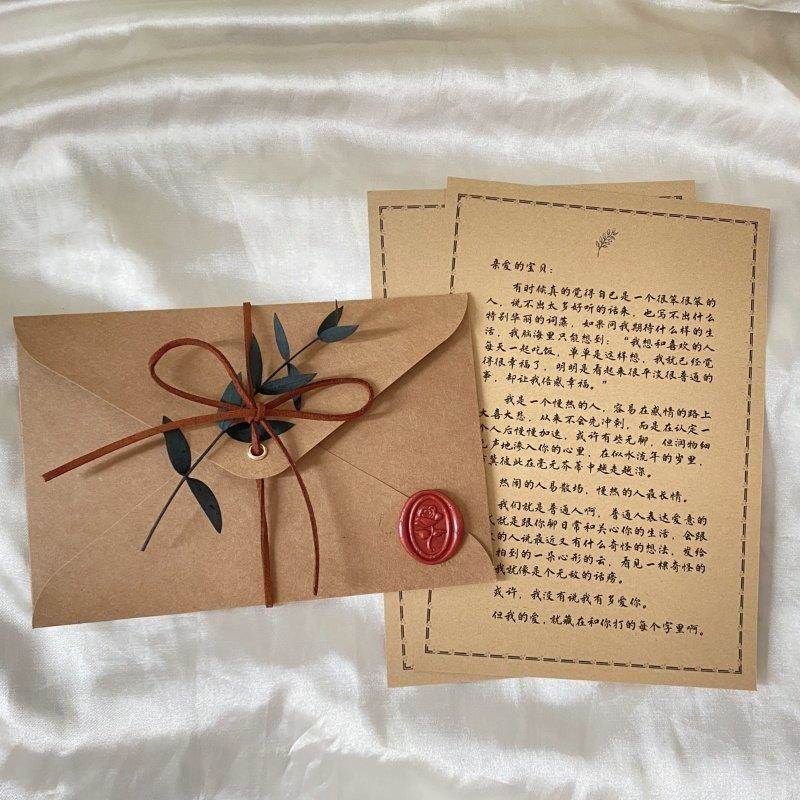 亲爱的宝贝：
有时候真的觉得自己是一个很笨很笨的
人，说不出太多好听的话来，也写不出什么
特别华丽的词藻，如果问我期待什么样的生
活，我脑海里只能想到：“我想和喜欢的人
每天一起吃饭，单单是这样想，我就已经觉
得很幸福了，明明是看起来很平淡很普通的
事，却让我倍感幸福。”
我是一个慢热的人，容易在感情的路上
大喜大悲，从来不会先冲刺，而是在认定一
个人后慢慢加速，或许有些无聊，但润物细
无声地渗入你的心里，在似水流年的岁里，
冀彼此在毫无芥蒂中越走越深。
热闹的人易散场，慢热的人最长情。
我们就是普通人啊，普通人表达爱意的
就是跟你聊日常和关心你的生活，会跟
的人说最近又有什么奇怪的想法，发给
拍到的一朵心形的云，看见一棵奇怪的
我就像是个无敌的话痨。
或许，我没有说我有多爱你。
但我的爱，就藏在和你打的每个字里啊。